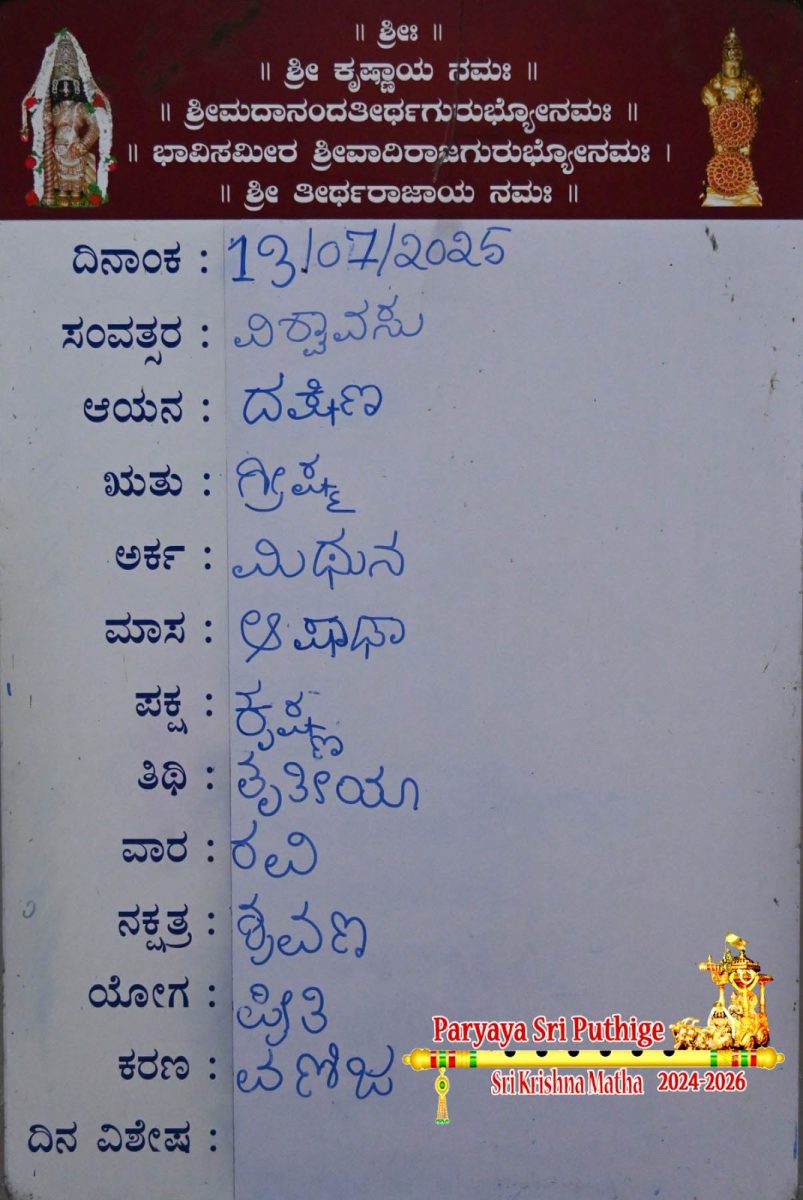 ॥ ಶ್ರೀಃ ॥
॥ ಶ್ರೀ ಕೃಷ್ಣಾಯ ನಮಃ ॥
॥ ಶ್ರೀಮದಾನಂದತೀರ್ಥಗುರುಭ್ಯೋನಮಃ ॥
॥ ಭಾವಿಸಮೀರ ಶ್ರೀವಾದಿರಾಜಗುರುಭ್ಯೋನಮಃ ।
॥ ಶ್ರೀ ತೀರ್ಥರಾಜಾಯ ನಮಃ ॥
ದಿನಾಂಕ : 13/07/2025
ಸಂವತ್ಸರ : ವಿಶ್ವಾವಸು
ಆಯನ : ದಕ್ಷಿಣ
ಋತು : ಗ್ರೀಷ್ಮ
ಅರ್ಕ : ಮಿಥುನ
ಮಾಸ : ಆಷಾಢಾ
ಪಕ್ಷ : ಕೃಷ್ಣ
ತಿಥಿ : ತೃತೀಯಾ
ವಾರ : ರವಿ
ನಕ್ಷತ್ರ : ಶ್ರವಣ
ಯೋಗ : ಪ್ರೀತಿ
ಕರಣ : ವಣಿಜ
ದಿನ ವಿಶೇಷ :
Paryaya Sri Puthige
Sri Krishna Matha 2024-2026